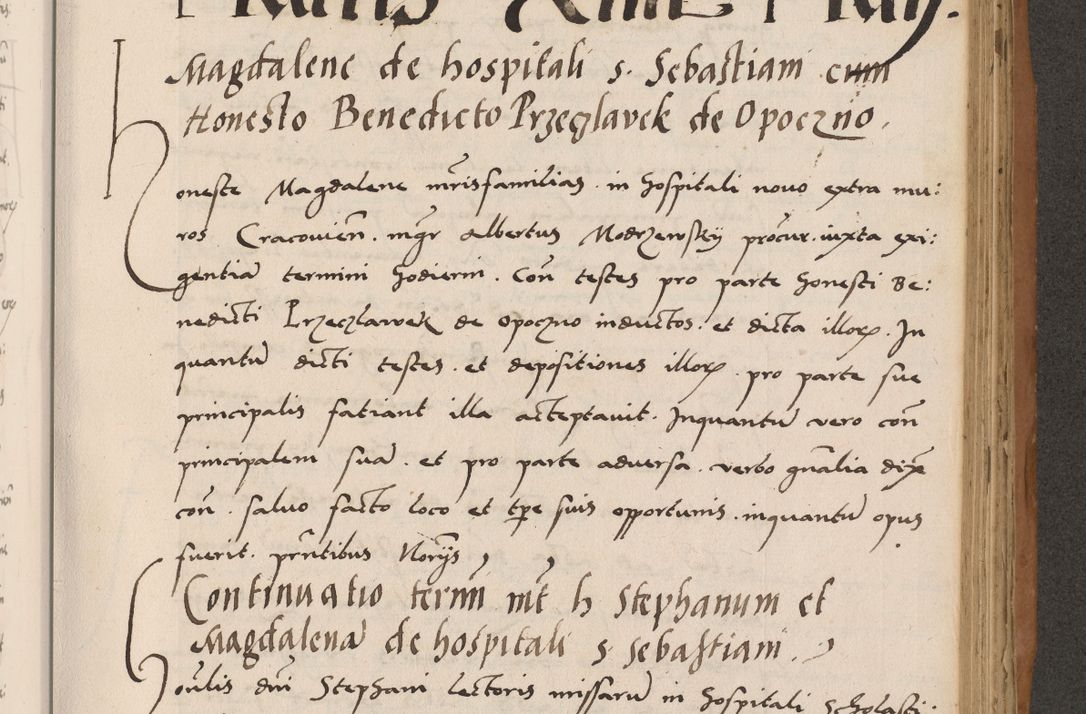 Martis Xiiii Maij.
Magdalene de hospitali s. Sebastiani cum
Honesto Benedicto Przeczlavek de Opoczno.
Honeste Magdalene mr̄isfamilias. in hospitali novo extra mu:
ros Cracovien̄. mgr̄ Albertus Modrzewskij procur. iuxta exi:
gentiā termini hodierni. Con̄ testes pro parte honesti Be:
nedicti Przeczlawek de Opoczno inductos. et dicta illorꝝ. In
quantū dicti testes. et depositiones illorꝝ. pro parte sue
principalis fatiant illa acceptavit. Inquantū vero con̄
principalem suā. et pro parte adversa. verbo gn̄alia dixit
con̄. salvo facto loco et tpe suis opportunis. inquantū opus
fuerit. prn̄tibus Norijs
Continuatio termi int̄ h Stephanum et
Magdalenā de hospitali s Sebastiani.
dni Stephani lectoris missarū in hospitali Scholasti: